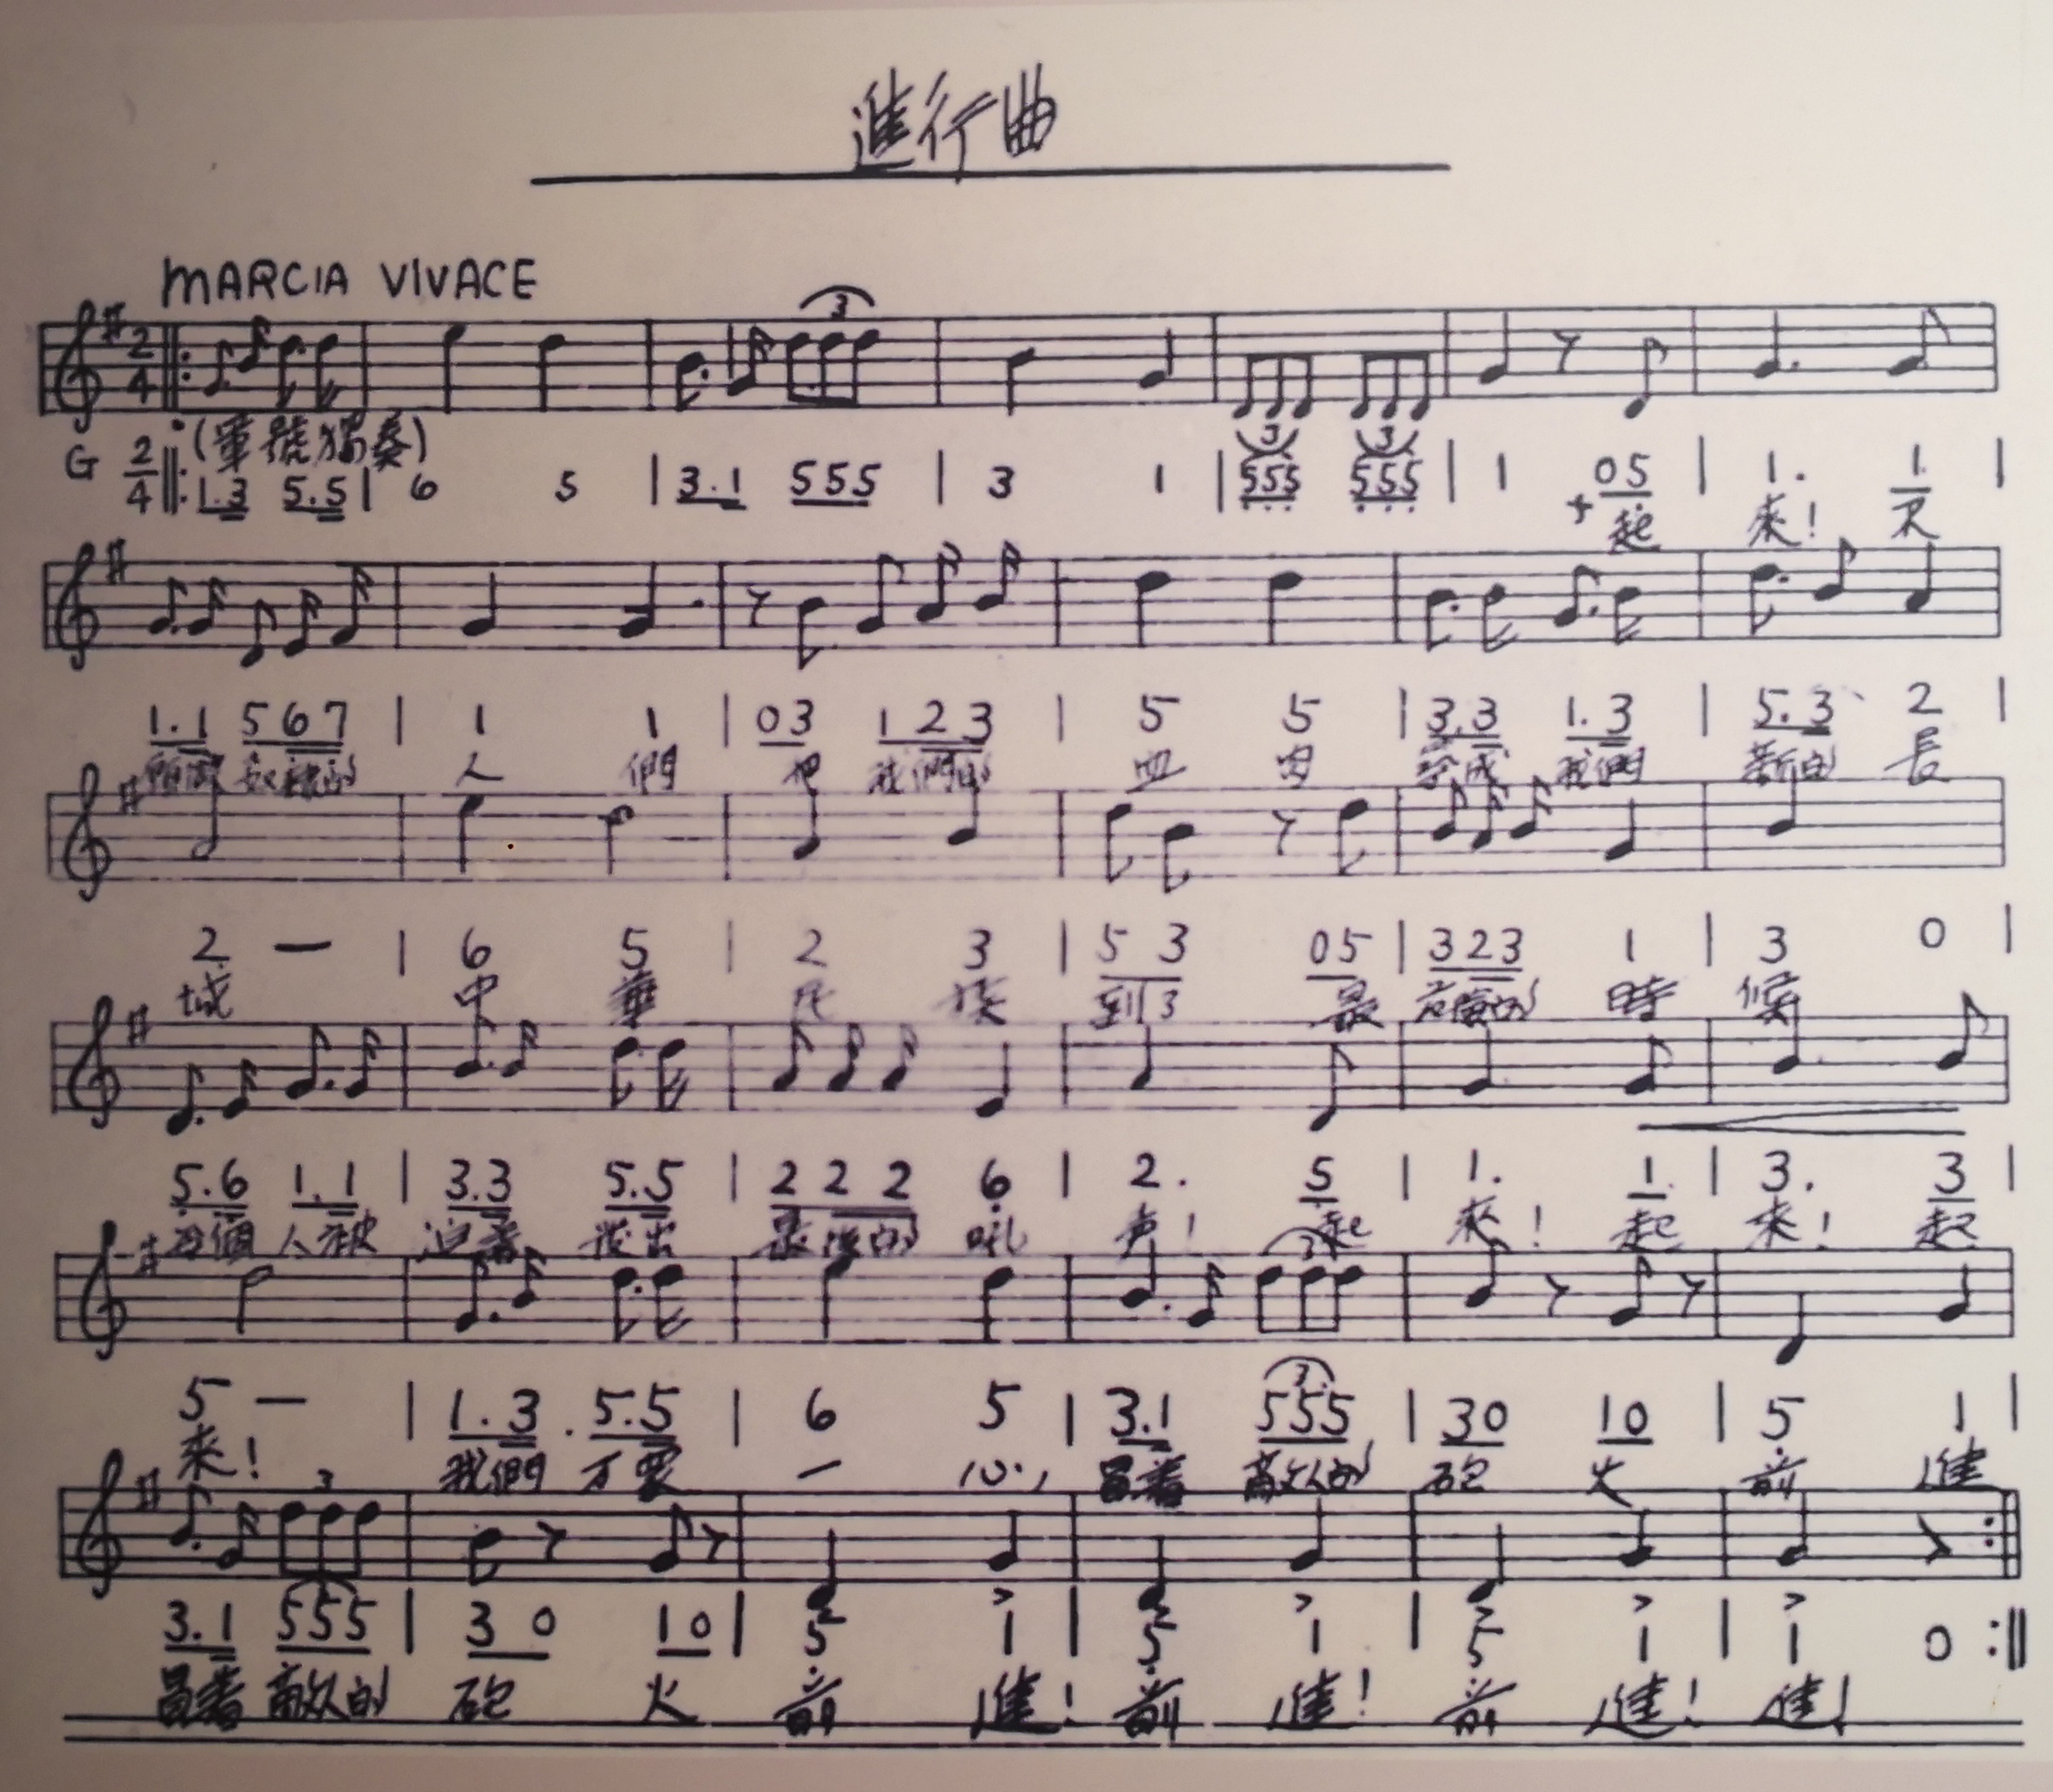 進行曲
MARCIA VIVACE
3
2 4
(軍號獨奏)
G 2/4 ‖: 1.3 5.5 | 6 5 | 3.1 555 | 3 1 | 555 555 | 1 05 | 1. 1 |
起 來! 不
1.1 567 | 1 1 | 03 123 | 5 5 | 3.3 1.3 | 5.3 2 |
人 們 把 我們的 血 肉 築成 我們 新的 長
2 — | 6 5 | 2 3 | 5 3 05 | 323 1 | 3 0 |
城 中 華 民 族 到了 最 危險的 時 候
5.6 1.1 | 3.3 5.5 | 2 2 2 6 | 2. 5 | 1. 1 | 3. 3 |
每個 人被 迫著 發出 最後的 吼 声! 起 來! 起 來! 起
3
5 — | 1.3 5.5 | 6 5 | 3.1 555 | 30 10 | 5 1 |
來! 我們 万眾 一 心, 冒著 敵人的 砲 火 前 進
3
3.1 555 | 3 0 10 | 5 1 | 5 1 | 5 1 | 1 0 :‖
冒著 敵人的 砲 火 前 進! 前 進! 前 進! 進!